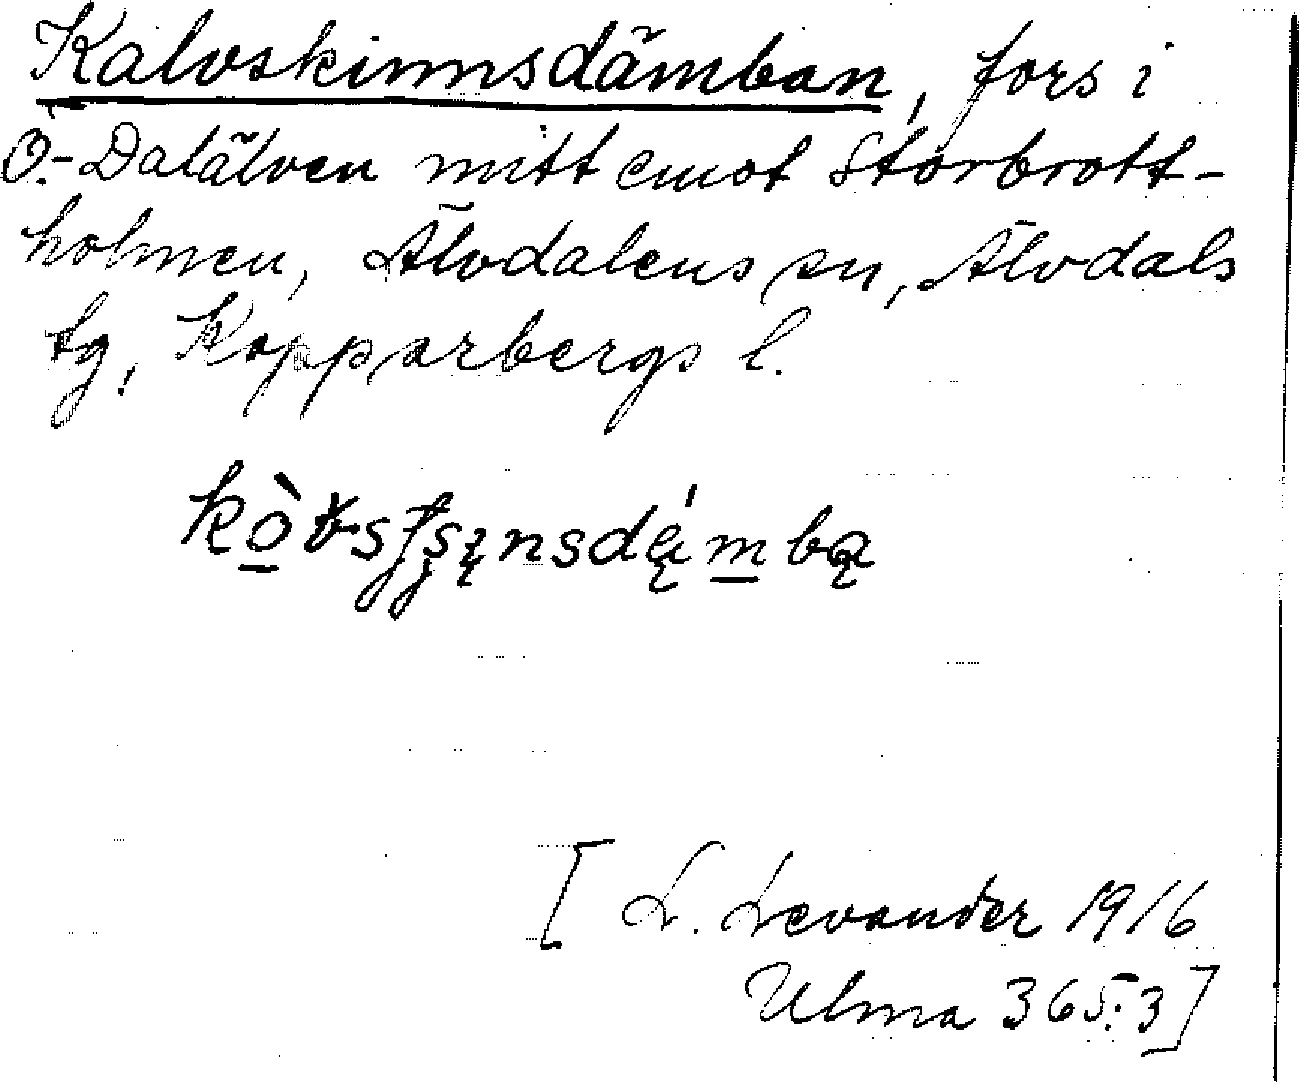 Kalvskinnsdämban, fors i
Ö.-Dalälven mitt emot Storbrott-
holmen, Älvdalens sn, Älvdals
tg, Kopparbergs l.
[ L. Levander 1916
Ulma 365:3 ]